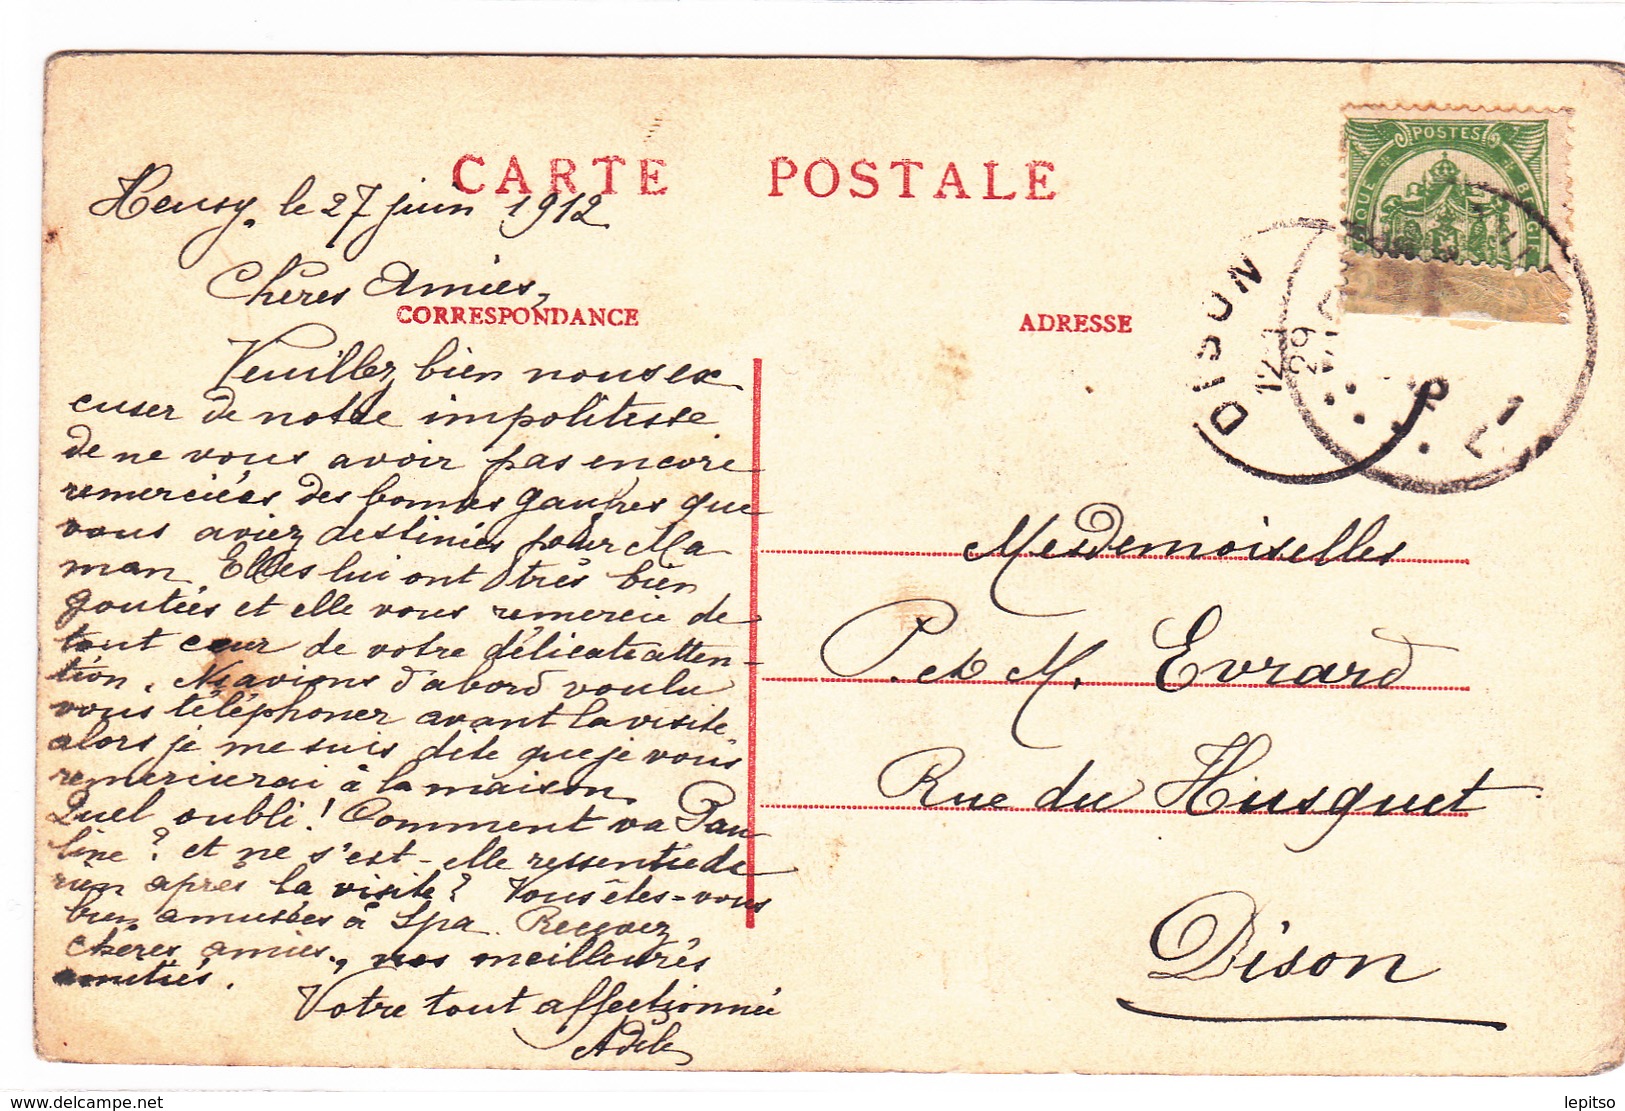 CARTE POSTALE
Heusy, le 27 juin 1912
Chères Amies,
CORRESPONDANCE
Veuillez bien nous ex
cuser de notre impolitesse
de ne vous avoir pas encore
remerciées des bonnes gaufres que
vous aviez destinées pour Ma
man. Elles lui ont très bien
goutées et elle vous remercie de
tout cœur de votre délicate atten-
tion. Ns avions d'abord voulu
vous téléphoner avant la visite,
alors je me suis dite que je vous
remercierai à la maison.
Quel oubli! Comment va Pau
line? et ne s'est-elle ressentie de
rien après la visite? Vous êtes-vous
bien amusées à Spa. Recevez,
chères amies, nos meilleures
amitiés.
Votre tout affectionnée
Adèle
ADRESSE
Mesdemoiselles
P. et M. Evrard
Rue du Husquet
Dison
POSTES
BELGIQUE
BELGIE
DISON
29
delcampe.net
lepitso